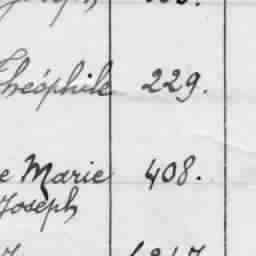 Théophile 229.
e Marie 408.
Joseph